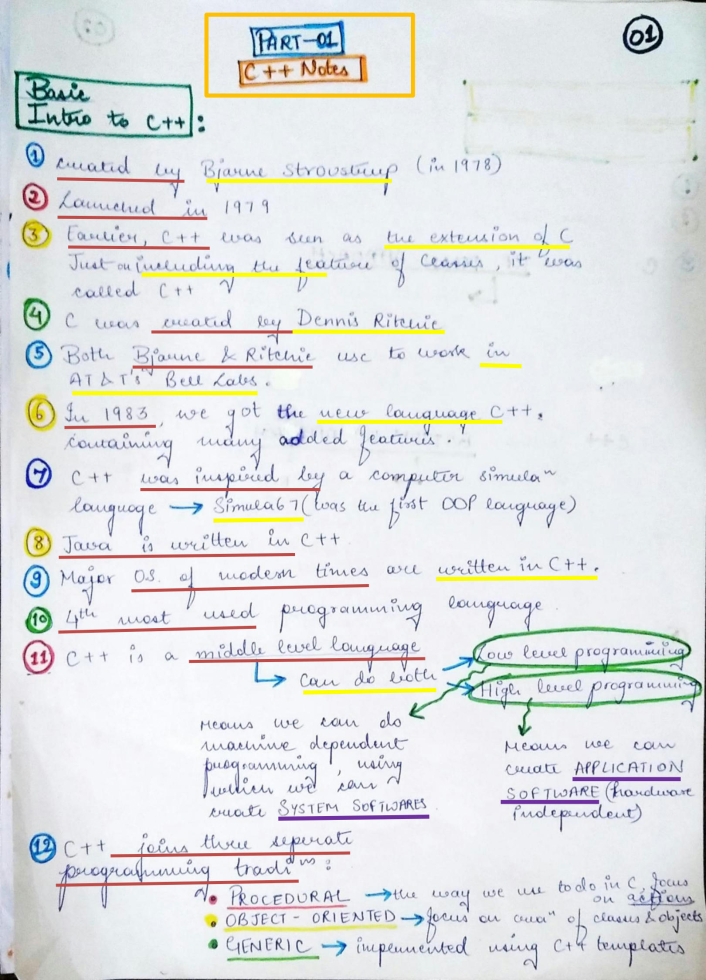 01
PART-01
C++ Notes
Basic
Intro to C++:
1 created by Bjarne Stroustrup (in 1978)
2 Launched in 1979
3 Earlier, C++ was seen as the extension of C
Just on including the feature of classes, it was
called C++
4 C was created by Dennis Ritchie
5 Both Bjarne & Ritchie use to work in
AT&T's Bell Labs.
6 In 1983, we got the new language C++,
containing many added features.
7 C++ was inspired by a computer simulaⁿ
language → Simula67 (was the first OOP language)
8 Java is written in C++.
9 Major OS. of modern times are written in C++.
10 4th most used programming language
11 C++ is a middle level language
Can do both
Low level programming
High level programming
Means we can do
machine dependent
programming, using
which we can
create SYSTEM SOFTWARES.
Means we can
create APPLICATION
SOFTWARE (hardware
independent)
12 C++ joins three seperate
programming tradiⁿˢ:
• PROCEDURAL → the way we use to do in C, focus
on actions
• OBJECT-ORIENTED → focus on creaⁿ of classes & objects
• GENERIC → impemented using C++ templates